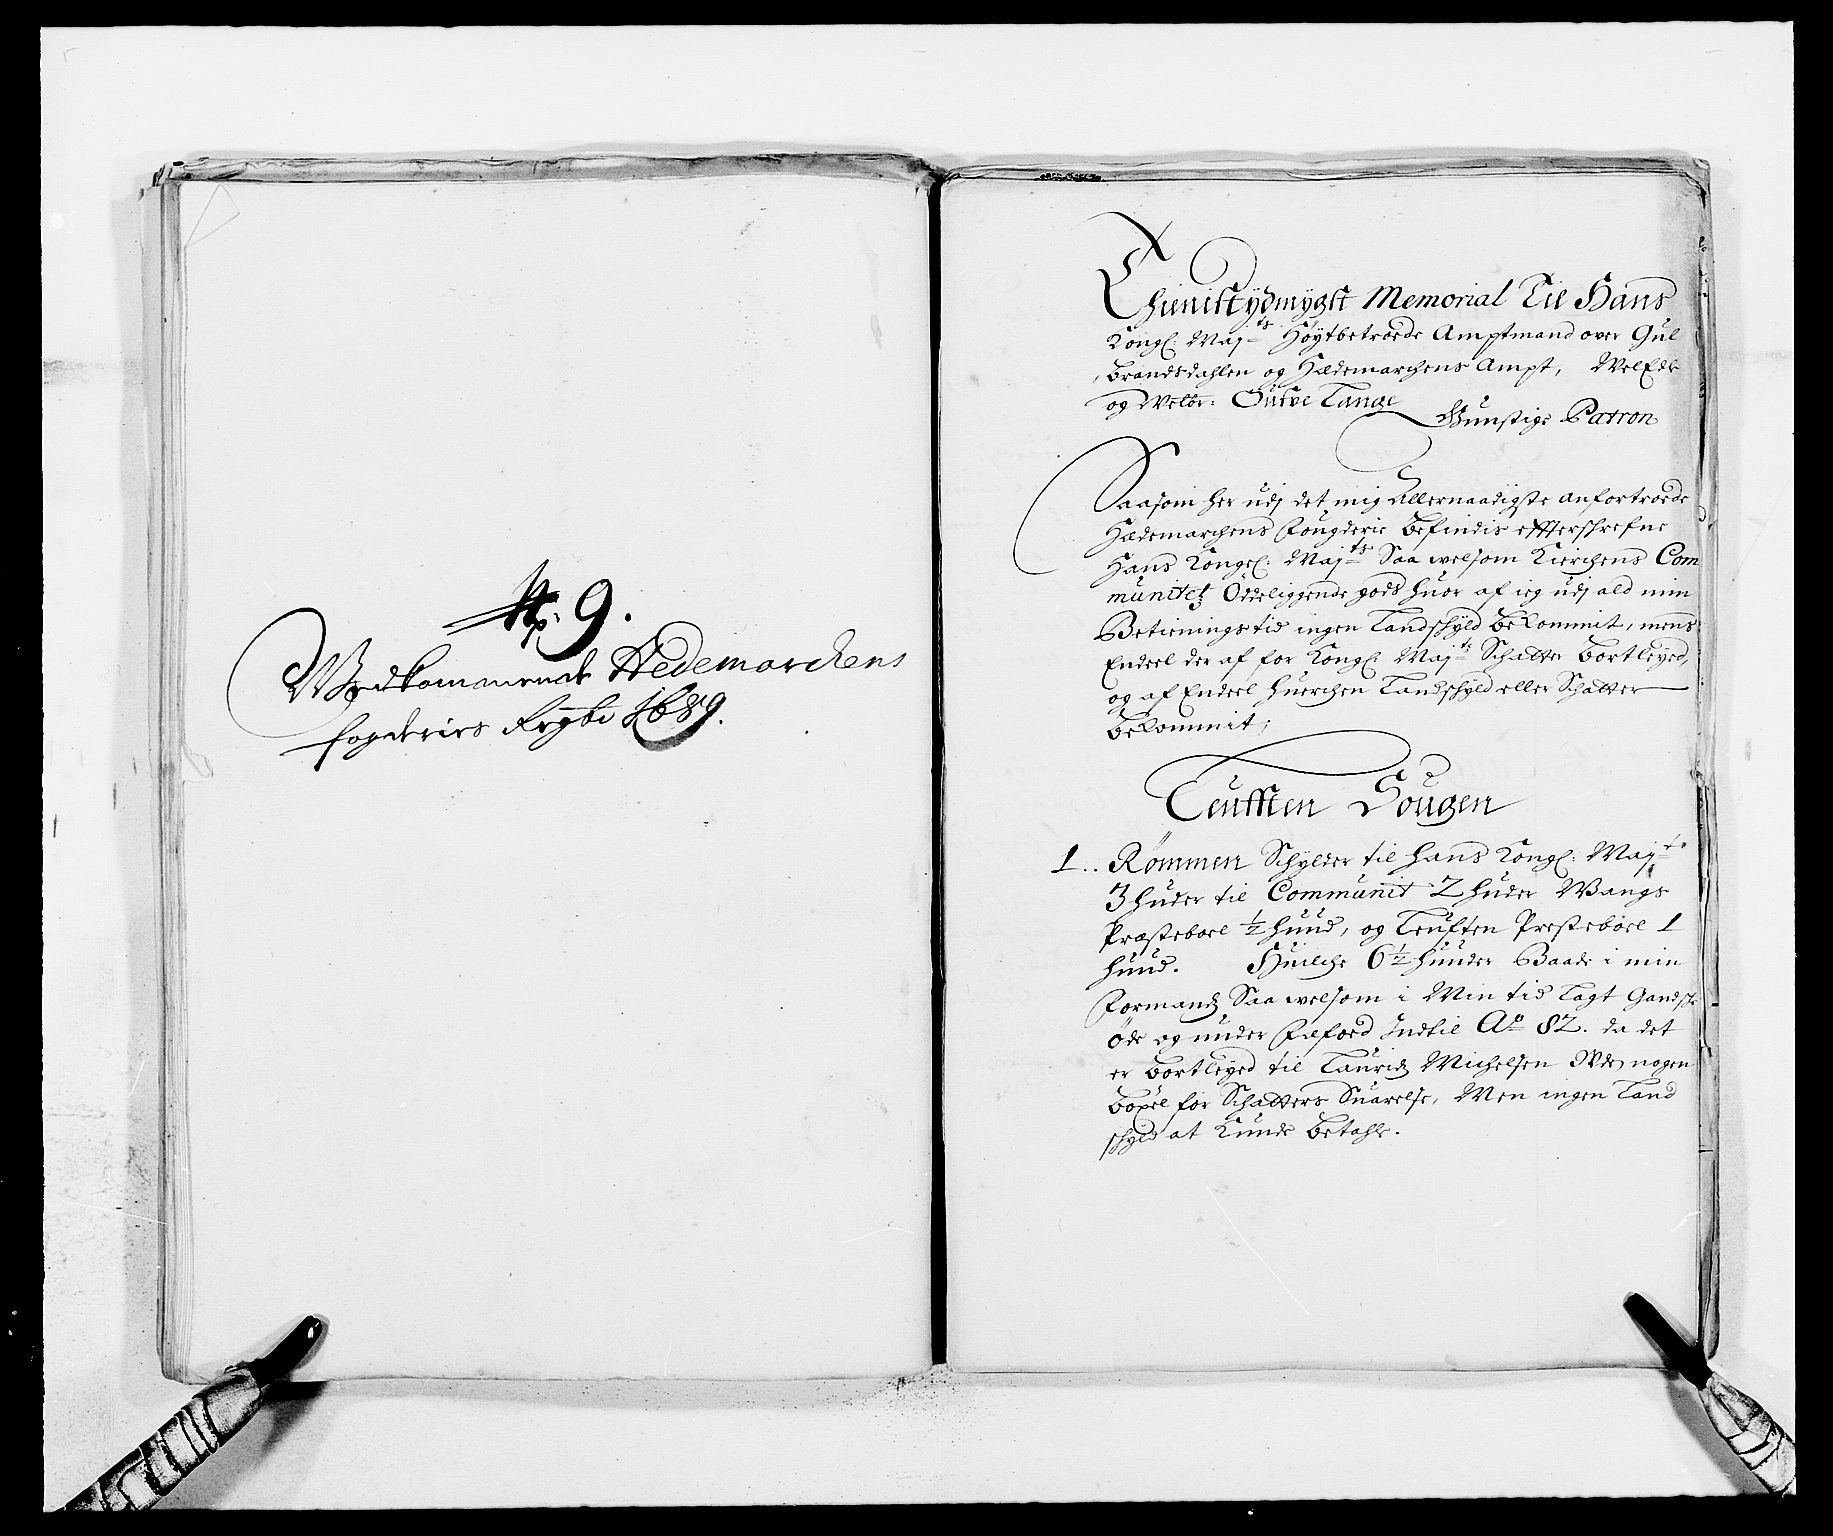 No. 9.
Wedkommende Hedemarchens
fogderies Regbr 1689.
Thienistydmygst Memorial Til Hans
Kongl: Maj:ts Høytbetroede Amptmand over Gul
brandsdahlen og Hædemarchens Ampt, WelEdle
og Welbr: Gunstige Patron
Saasom her udj det mig Allernaadigste anfortroede
Hædemarchens Fougderie befindis effterschrefne
Hans Kongel: Maj:ts Saa welsom Kierchens Com
munitetz Ödeliggende gods huor af ieg udj ald min
Betienings tid ingen Landschyld bekommit, mens
Endeel der af for Kongl: Maj:ts Schatter bortleyed,
og af Endeel huerchen Landschyld eller Schatter
bekommit,
Teufften Sougen
1.. Römmen Schylder til hans Kongl: Maj:ts
3 huder til Communit 2 huder Wangs
Præsteboel 1/2 huud, og Teuften Presteboel 1
huud. Huilche 6 1/2 huuder Baade i min
Formandz Saa welsom i Min tid lagt Gandsche
öde og under Falfoed Indtil Ao 82. da det
er bortleyed til Lauridz Michelsen Uden nogen
böxel for Schatters Suarelse, Men ingen Land
schyld at kunde betahle.